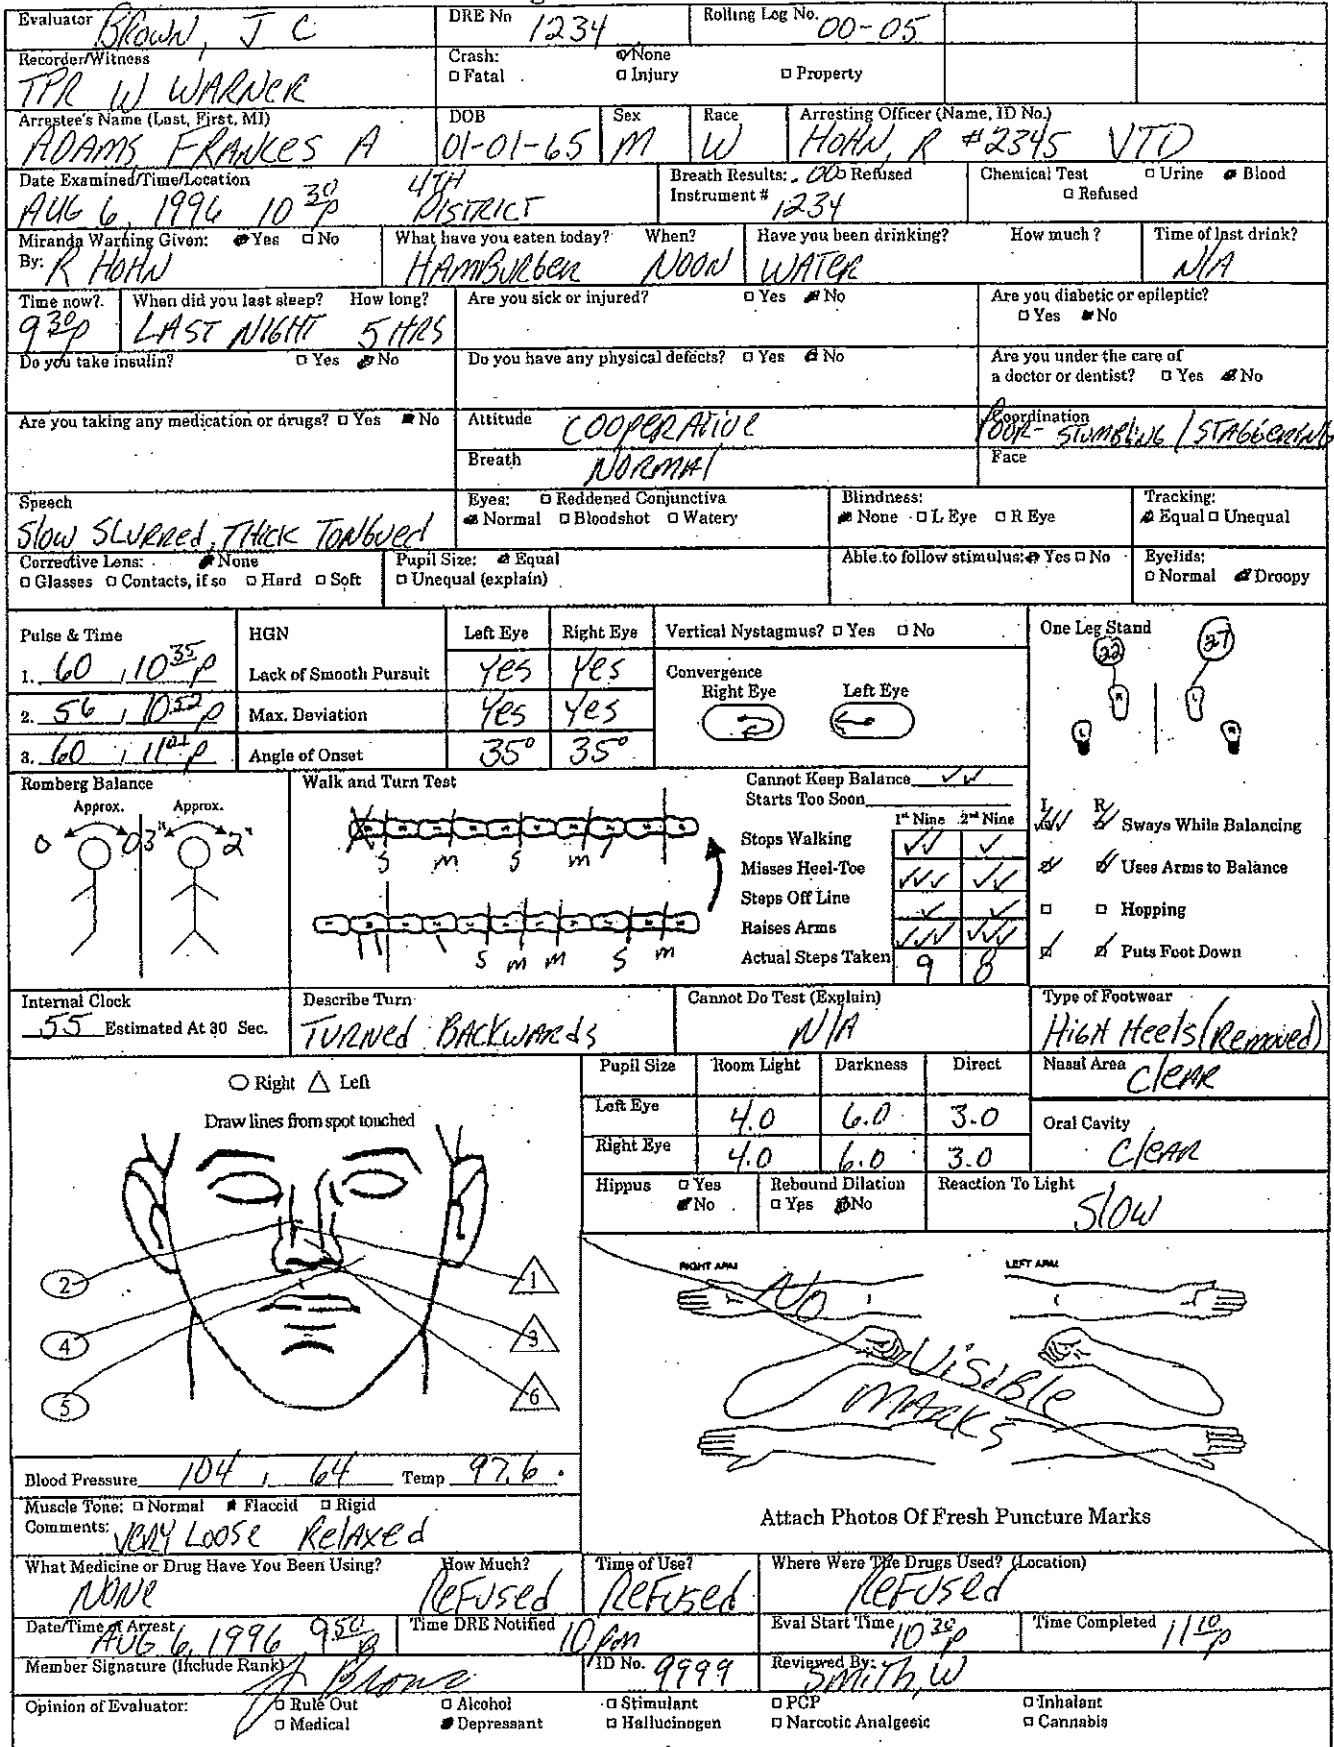 Evaluator BROWN, J C DRE No 1234 Rolling Log No. 00-05
Recorder/Witness TPR W WARNER Crash: None Fatal Injury Property
Arrestee's Name (Last, First, MI) ADAMS FRANCES A DOB 01-01-65 Sex M Race W Arresting Officer (Name, ID No.) HOHN, R #2345 VTD
Date Examined/Time/Location AUG 6, 1996 10 30 p 4TH DISTRICT Breath Results: .00 Refused Instrument # 1234 Chemical Test Urine Blood Refused
Miranda Warning Given: Yes No By: R HOHN What have you eaten today? When? HAMBURGER NOON Have you been drinking? How much ? WATER Time of last drink? N/A
Time now? 9 30 p When did you last sleep? How long? LAST NIGHT 5 HRS Are you sick or injured? Yes No Are you diabetic or epileptic? Yes No
Do you take insulin? Yes No Do you have any physical defects? Yes No Are you under the care of a doctor or dentist? Yes No
Are you taking any medication or drugs? Yes No Attitude COOPERATIVE Coordination POOR - STUMBLING / STAGGERING
Breath NORMAL Face
Speech Slow SLURRED, THICK TONGUED Eyes: Reddened Conjunctiva Normal Bloodshot Watery Blindness: None L Eye R Eye Tracking: Equal Unequal
Corrective Lens: None Glasses Contacts, if so Hard Soft Pupil Size: Equal Unequal (explain) Able to follow stimulus: Yes No Eyelids: Normal Droopy
Pulse & Time HGN Left Eye Right Eye Vertical Nystagmus? Yes No One Leg Stand 22 27
1. 60 , 10 35 p Lack of Smooth Pursuit Yes Yes Convergence Right Eye Left Eye R L
2. 56 , 10 52 p Max. Deviation Yes Yes L R
3. 60 , 11 02 p Angle of Onset 35° 35°
Romberg Balance Walk and Turn Test Cannot Keep Balance
Approx. Approx. Starts Too Soon
0 0 3" 2" 1st Nine 2nd Nine L R
S M S M Stops Walking Sways While Balancing
Misses Heel-Toe Uses Arms to Balance
Steps Off Line Hopping
Raises Arms Puts Foot Down
S M M S M Actual Steps Taken 9 8
Internal Clock 55 Estimated At 30 Sec. Describe Turn TURNED BACKWARDS Cannot Do Test (Explain) N/A Type of Footwear HIGH Heels (Removed)
Right Left Pupil Size Room Light Darkness Direct Nasal Area Clear
Draw lines from spot touched Left Eye 4.0 6.0 3.0 Oral Cavity Clear
Right Eye 4.0 6.0 3.0
Hippus Yes No Rebound Dilation Yes No Reaction To Light Slow
RIGHT ARM LEFT ARM
2 1
4 3
5 6
NO VISIBLE MARKS
Attach Photos Of Fresh Puncture Marks
Blood Pressure 104 , 64 Temp 97.6
Muscle Tone: Normal Flaccid Rigid
Comments: VERY LOOSE RELAXED
What Medicine or Drug Have You Been Using? How Much? NONE REFUSED Time of Use? REFUSED Where Were The Drugs Used? (Location) REFUSED
Date/Time of Arrest AUG 6, 1996 9 50 p Time DRE Notified 10 pm Eval Start Time 10 30 p Time Completed 11 10 p
Member Signature (Include Rank) J Brown ID No. 9999 Reviewed By: SMITH, W
Opinion of Evaluator: Rule Out Alcohol Stimulant PCP Inhalant
Medical Depressant Hallucinogen Narcotic Analgesic Cannabis